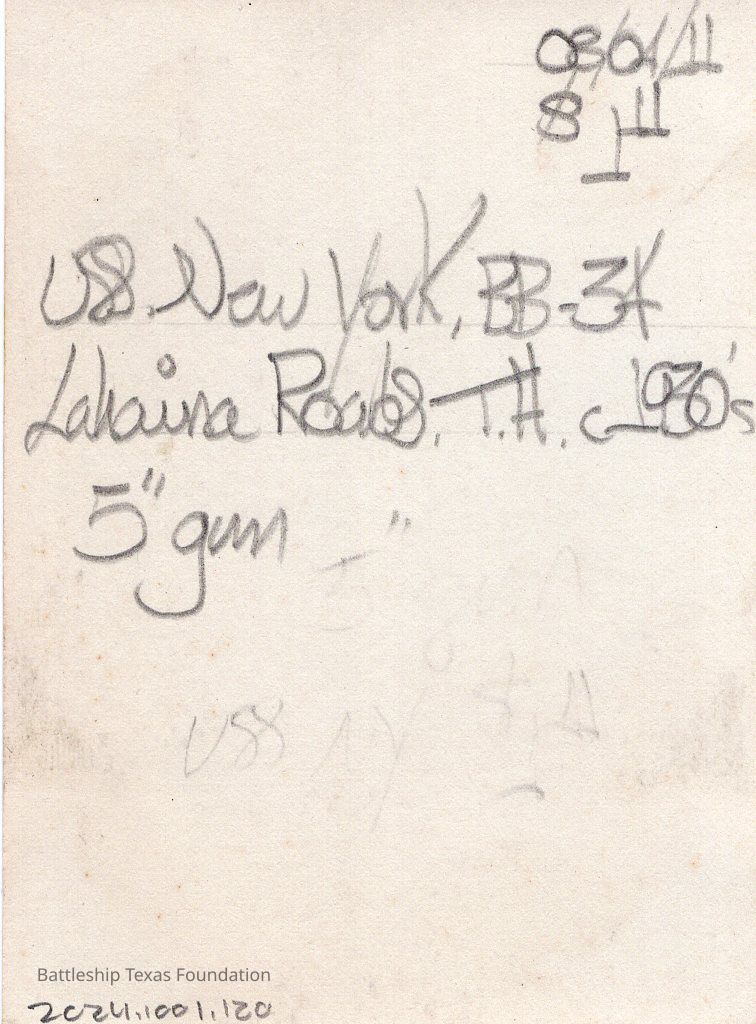 03/01/11
8
USS. New York, BB-34
Lahaina Roads. T.H. c_1930's
5" gun
"
USS NY
Battleship Texas Foundation
2024.1001.120